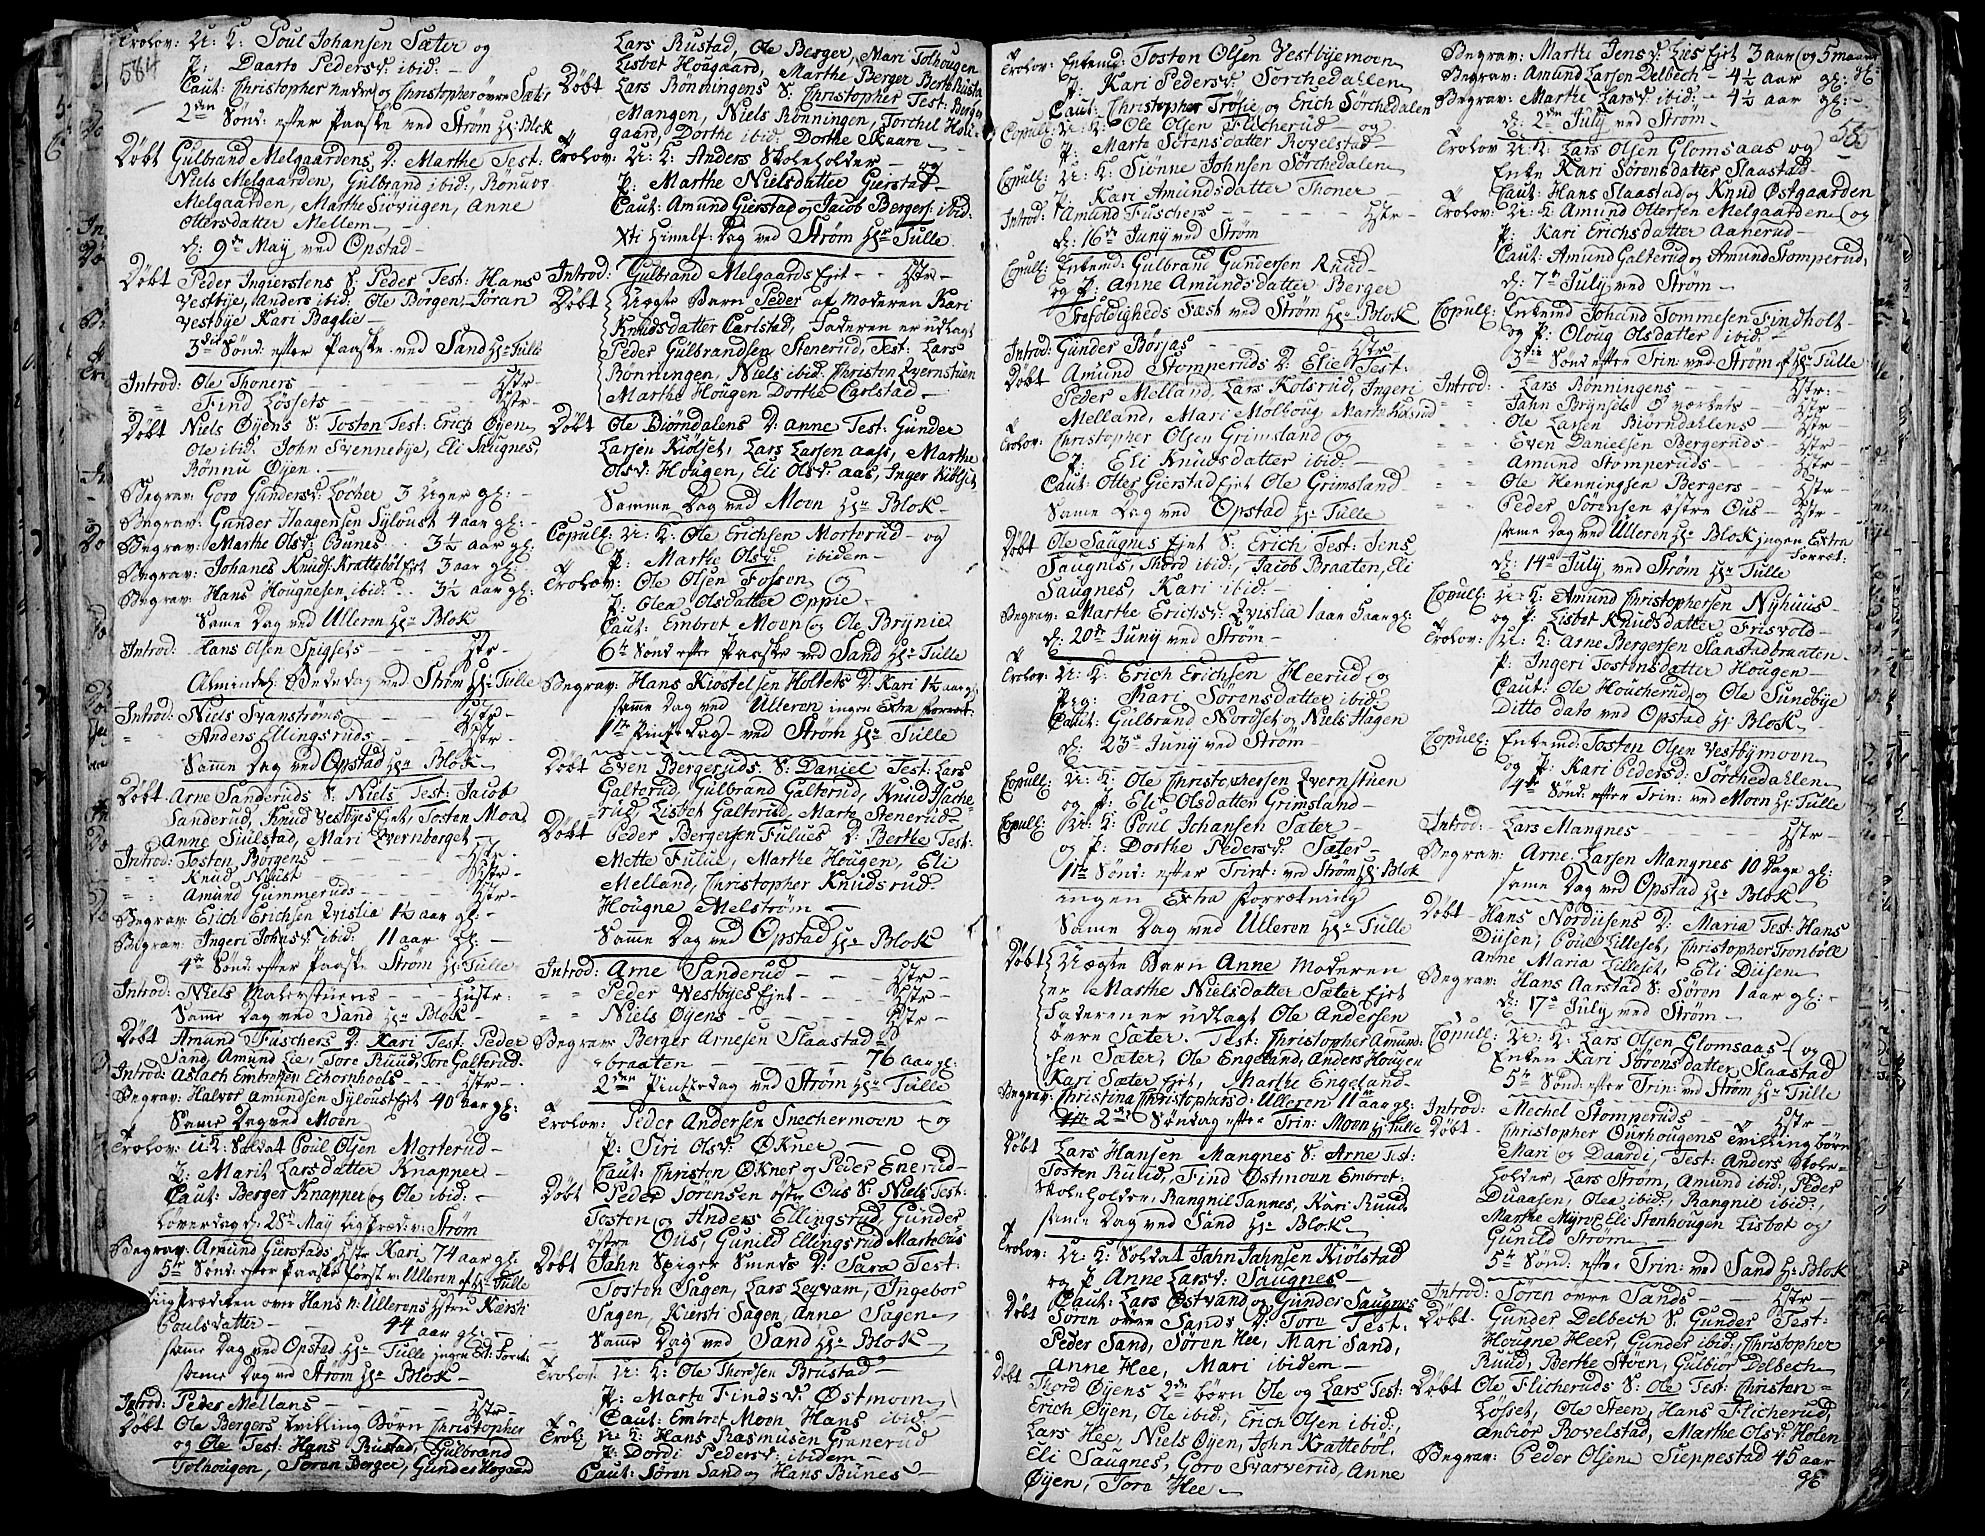 584
Trolov: U: K: Poul Johansen Sæter og
P: Daarto Pedersd: ibid: –
Caut: Christopher nedre og Christopher øvre Sæter
2den Sønd: efter Paaske ved Strøm Hr: Blok
Døbt Gulbrand Melgaardens D: Marthe Test:
Niels Melgaarden, Gulbrand ibid:, Rønnve
Melgaarden, Marthe Siviigen, Anne
Ottersdatter Mellem –
d: 9de May ved Opstad –
Døbt Peder Ingierstens S: Peder Test: Hans
Vestbye, Anders ibid: Ole Borgen, Jøran
Vestbye Kari Baglie –
3die Sønd: efter Paaske ved Sand Hr: Tulle
Introd: Ole Thoners – – – – Hstr –
" " Find Løssets – – – – Hstr –
Døbt Niels Øyens S: Toston Test: Erich Øyen
Ole ibid: John Svennebye, Eli Saugnes,
Rønnu Øyen. –
Begrav: Goro Gundersd: Løcher 3 Uger gl: –
Begrav: Gunder Haagensen Syloust 4 aar gl: –
Begrav: Marthe Olsd: Bunes – 3½ aar gl:
Begrav: Johanes Knuds: Krattebøl Ejet 3 aar gl:
Begrav: Hans Hougnesen ibid: – 3½ aar gl:
Same Dag ved Ulleren Hr: Blok
Introd: Hans Olsen Spigsets – – – Hstr –
Almindel: Bededag ved Strøm Hr: Tulle
Introd: Niels Svanstrøms – – – Hstr –
" Anders Ellingsruds – – – Hstr –
Samme Dag ved Opstad Hr: Blok –
Døbt Arne Sanderuds S: Niels Test: Jacob
Sanderud, Knud Vestbyes Ejet, Toston Moa,
Anne Siulstad, Mari Qvernberget –
Introd: Toston Borgens – – – Hstr –
" " Knud Nust – – – Hstr –
" " Amund Gummeruds – – – Hstr –
Begrav: Erich Erichsen Qvislia 1½ aar gl: –
Begrav: Ingeri Johnsd: ibid: 11 aar gl: –
4de Sønd: efter Paaske Strøm Hr: Tulle
Introd: Niels Malerstuens – – – Hustr:
Same Dag ved Sand Hr: Blok –
Døbt Amund Fuschers D: Kari Test: Peder
Sand, Amund Lie, Tore Ruud, Tore Galterud
Introd: Aslach Embretsen Echornhools – – – Hstr –
Begrav: Halvor Amundsen Syloust Ejet 40 aar gl:
Same Dag ved Moen
Trolov: U: K: Soldat Poul Olsen Morterud –
P: Marit Larsdatter Knapper –
Caut: Berger Knapper og Ole ibid: –
Løverdag d: 28de May Ligpræd: v: Strøm
Begrav: Amund Gierstads Hstr Kari 74 aar gl:
5te Sønd: efter Paaske først v: Ulleren af Hr: Tulle
Liigprædiken over Hans n: Ullerens Hstru Kærsti
Poulsdatter – – – 44 aar gl: –
same Dag ved Opstad Hr: Tulle ingen Ext: Forret:
same Dag ved Strøm Hr: Blok –
Introd: Peder Mellans – – – – Hstr –
Døbt Ole Bergers tvilling Børn Christopher
og Ole Test: Hans Rustad, Gulbrand
Tolhougen, Søren Berger, Gunder Hogaard
Lars Rustad, Ole Berger, Mari Tolhougen
Lisbet Hougaard, Marthe Berger Berthe Rusta
Døbt Lars Rønningens S: Christopher Test: Børge
Mangen, Niels Rønningen, Torchel Hol-
gaard, Dorthe ibid: Dorthe Skaare –
Trolov: U: K: Anders Skoleholder – og
P: Marthe Nielsdatter Gierstad –
Caut: Amund Gierstad og Jacob Bergers: ibid:
Xti Himelf: Dag ved Strøm Hr: Tulle
Introd: Gulbrand Melgaards Ejet – – Hstr –
Døbt Uægte Barn Peder af Moderen Kari
Knudsdatter Carlstad, Faderen er udlagt
Peder Gulbrandsen Stenerud, Test: Lars
Rønningen, Niels ibid: Christen Qvernstuen
Marthe Hougen Dorthe Carlstad –
Døbt Ole Biørndalens D: Anne Test: Gunder
Larsen Kiølset, Lars Larsen Aass, Marthe
Olsd: Hougen, Eli Olsd: Aas, Inger Kiølset
Samme Dag ved Moen Hr: Blok –
Copull: U: K: Ole Erichsen Morterud – og
P: Marthe Olsd: ibidem –
Trolov: Ole Olsen Fossen og
P: Olea Olsdatter Oppie –
Caut: Embret Moen og Ole Brynie
6te Sønd: efter Paaske ved Sand Hr: Tulle
Begrav: Hans Kiøstelsen Holtets D: Kari 1½ aar gl:
same Dag ved Ulleren ingen Extra Forret:
1ste Pinse Dag – ved Strøm Hr: Tulle
Døbt Even Bergeruds S: Daniel Test: Lars
Galterud, Gulbrand Galterud, Knud Hache-
rud, Lisbet Galterud, Marthe Stenerud –
Døbt Peder Bergersen Fulues D: Berthe Test:
Mette Fulue, Marthe Hougen, Eli
Melland, Christopher Knudsrud
Hougne Melstrøm –
Samme Dag ved Opstad Hr: Blok
Introd: Arne Sanderud – – – Hstr –
" " Peder Westbyes Ejet – – – Hstr –
" " Niels Øyens – – – – – Hstr –
Begrav: Berger Arnesen Slaastad –
braaten – – – – 76 aar gl:
2den Pintzedag ved Strøm Hr: Tulle
Trolov: Peder Andersen Snechermoen – og
P: Siri Olsd: Økner –
Caut: Christen Økner og Peder Enerud –
Døbt Peder Sørensen østre Ous S: Niels Test:
Tosten og Anders Ellingsrud, Gunder
østre Ous, Gunild Ellingsrud Marte Ous
Døbt Jahn Spiger Smeds D: Sara Test:
Toston Sagen, Lars Leyram, Ingebor
Sagen, Kiersti Sagen, Anne Sagen
Samme Dag ved Sand Hr: Blok –
Trolov: U: K: Ole Thordsen Brustad
P: Marte Findsd: Østmoen
Caut: Embret Moen, Hans ibid:
Trol: U: K: Hans Rasmusen Granerud
P: Dordi Pedersd: ibidem –
Caut: Søren Sand og Hans Bunes –
Trolov: Enkemd: Toston Olsen Vestbyemoen
P: Kari Pedersd: Sørchedalen
Caut: Christopher Trøsie og Erich Sørchedalen
Copull: U: K: Ole Olsen Flicherud – og
P: Marte Sørensdatter Rovelstad –
Copull: U: K: Siønne Johnsen Sørchedalen
P: Kari Amundsdatter Thoner –
Introd: Amund Fuschers – – – – Hstr –
d: 16de Juny ved Strøm
Copull: Enkemd: Gulbrand Gundersen Ruud –
og P: Anne Amundsdatter Berger
Trefoldigheds Fæst ved Strøm Hr: Blok
Introd: Gunder Børjas – – – – Hstr –
Døbt Amund Stomperuds D: Elie Test:
Peder Melland, Lars Kolsrud, Ingeri
Melland, Mari Mølboug
Trolov: Christopher Olsen Grimsland og
P: Eli Knudsdatter ibid: –
Caut: Otter Gierstad Ejet Ole Grimsland –
Same Dag ved Opstad Hr: Tulle
Døbt Ole Saugnes Ejet S: Erich, Test: Jens
Saugnes, Thord ibid:, Jacob Braaten, Eli
Saugnes, Kari ibid: –
Begrav: Marthe Erichsd: Qvislia 1 aar gl:
d: 20de Juny ved Strøm –
Trolov: U: K: Erich Erichsen Heerud og
Pig: Mari Sørensdatter ibid:
Caut: Gulbrand Nordset og Niels Hagen
d: 23de Juny ved Strøm –
Copull: U: K: Ole Christophersen Qvernstuen
og P: Eli Olsdatter Grimsland –
Copull: U: K: Poul Johansen Sæter –
og P: Dorthe Pedersd: Sæter –
1ste Sønd: efter Trint: ved Strøm Hr: Blok
ingen Extra Forretning
Same Dag ved Ulleren Hr: Tulle
Døbt Uægte Barn Anne Moderen
er Marthe Nielsdatter Sæter Ejet
Faderen er udlagt Ole Andersen
øvre Sæter. Test: Christopher Amund-
sen Sæter, Ole Engeland, Anders Hougen
Kari Sæter Ejet, Marthe Engeland –
Begrav: Christina Christophersd: Ulleren 11 aar gl:
2den Søndag efter Trin: Moen Hr: Tulle
Døbt Lars Hansen Mangnes S: Arne Test:
Tosten Ruud, Find Østmoen Embret
Skoleholder, Rangnil Tannes, Kari Ruud
same Dag ved Sand Hr: Blok
Trolov: U: K: Soldat Jahn Jahnsen Kiølstad
og P: Anne Larsd: Saugnes –
Caut: Lars Østvand og Gunder Saugnes
Døbt Søren øvre Sands D: Tore Test:
Peder Sand, Søren Hee, Mari Sand,
Anne Hee, Mari ibidem –
Døbt Thord Øyens 2de børn Ole og Lars Test:
Erich Øyen, Ole ibid:, Erich Olsen ibid:,
Lars Hee, Niels Øyen, John Krattebøl,
Eli Saugnes, Goro Svarverud, Anne
Øyen, Tora Hee –
585
Begrav: Marthe Jensd: Lies Ejet 3 aar og 5 maan: gl:
Begrav: Amund Larsen Delbech – 4½ aar gl:
Begrav: Marthe Larsd: ibid: – 4½ aar gl: –
d: 2den July ved Strøm –
Trolov U: K: Lars Olsen Glomsaas og
Enke Kari Sørensdatter Slaastad –
Caut: Hans Slaastad og Knud Østgaarden
Trolov: U: K: Amund Ottersen Melgaarden og
P: Kari Erichsdatter Aanerud –
Caut: Amund Galterud og Amund Stomperud,
d: 7de July ved Strøm –
Copull: Enkemd Johand Tommesen Findholt –
og P: Oloug Olsdatter ibid: –
3die Sønd: efter Trin: ved Strøm af Hr: Tulle
Introd: Lars Rønningens – – Hstr –
Jahn Brynsels værkets – Hstr –
" " Ole Larsen Biørndahlens – Hstr –
" " Even Danielsen Bergeruds – Hstr –
" " Amund Stomperuds – – Hstr –
" " Ole Henningsen Bergers – Hstr –
" " Peder Sørensen østre Ous – Hstr –
same Dag ved Ulleren Hr: Blok ingen Extra
Forret:
d: 14de July ved Strøm Hr: Tulle
Copull: U: K: Amund Christophersen Nyhuus –
og P: Lisbet Knudsdatter Frisvold –
Trolov: U: K: Arne Bergersen Slaastadbraaten –
P: Ingeri Tostensdatter Hougen –
Caut: Ole Houcherud og Ole Sundbye
Ditto dato ved Opstad Hr: Blok –
Copull: Enkemd: Toston Olsen Vestbymoen
og P: Kari Pedersd: Sørchedahlen
4de Sønd: efter Trin: ved Moen Hr: Tulle
Introd: Lars Mangnes – – – Hstr –
Begrav: Arne Larsen Mangnes 10 Dage gl:
same Dag ved Opstad Hr: Blok –
Døbt Hans Nordiisens D: Maria Test: Hans
Diisen, Poul Lilleset, Christopher Trombølle
Anne Maria Lilleset, Eli Diisen
Begrav: Hans Aarstad S: Søren 1 aar gl: –
d: 17de July ved Strøm –
Copull: U: K: Lars Olsen Glomsaas – og
Enken Kari Sørensdatter Slaastad
5te Sønd: efter Trin: ved Strøm Hr: Tulle
Introd: Mechel Stomperuds – – Hstr –
Døbt Christopher Ourhougens tvilling børn
Mari og Daardi, Test: Anders Skole-
holder, Lars Strøm, Amund ibid:, Peder
Duaasen, Olea ibid:, Rangnie ibid:,
Marthe Myre, Eli Stenhougen Lisbet og
Gunild Strøm –
5te Sønd: efter Trin: ved Sand Hr: Blok
Introd: Søren øvre Sands – – Hstr –
Døbt Gunder Delbech S: Gunder Test:
Hougne Heer, Gunder ibid:, Christopher
Ruud, Berthe Støen, Gulbiør Delbech
Døbt Ole Flicheruds S: Ole Test: Christen –
Løsset, Ole Steen, Hans Flicherud,
Anbiør Rovelstad, Marthe Olsd: Holen
Begrav: Peder Olsen Sieppestad 45 aar
gl: